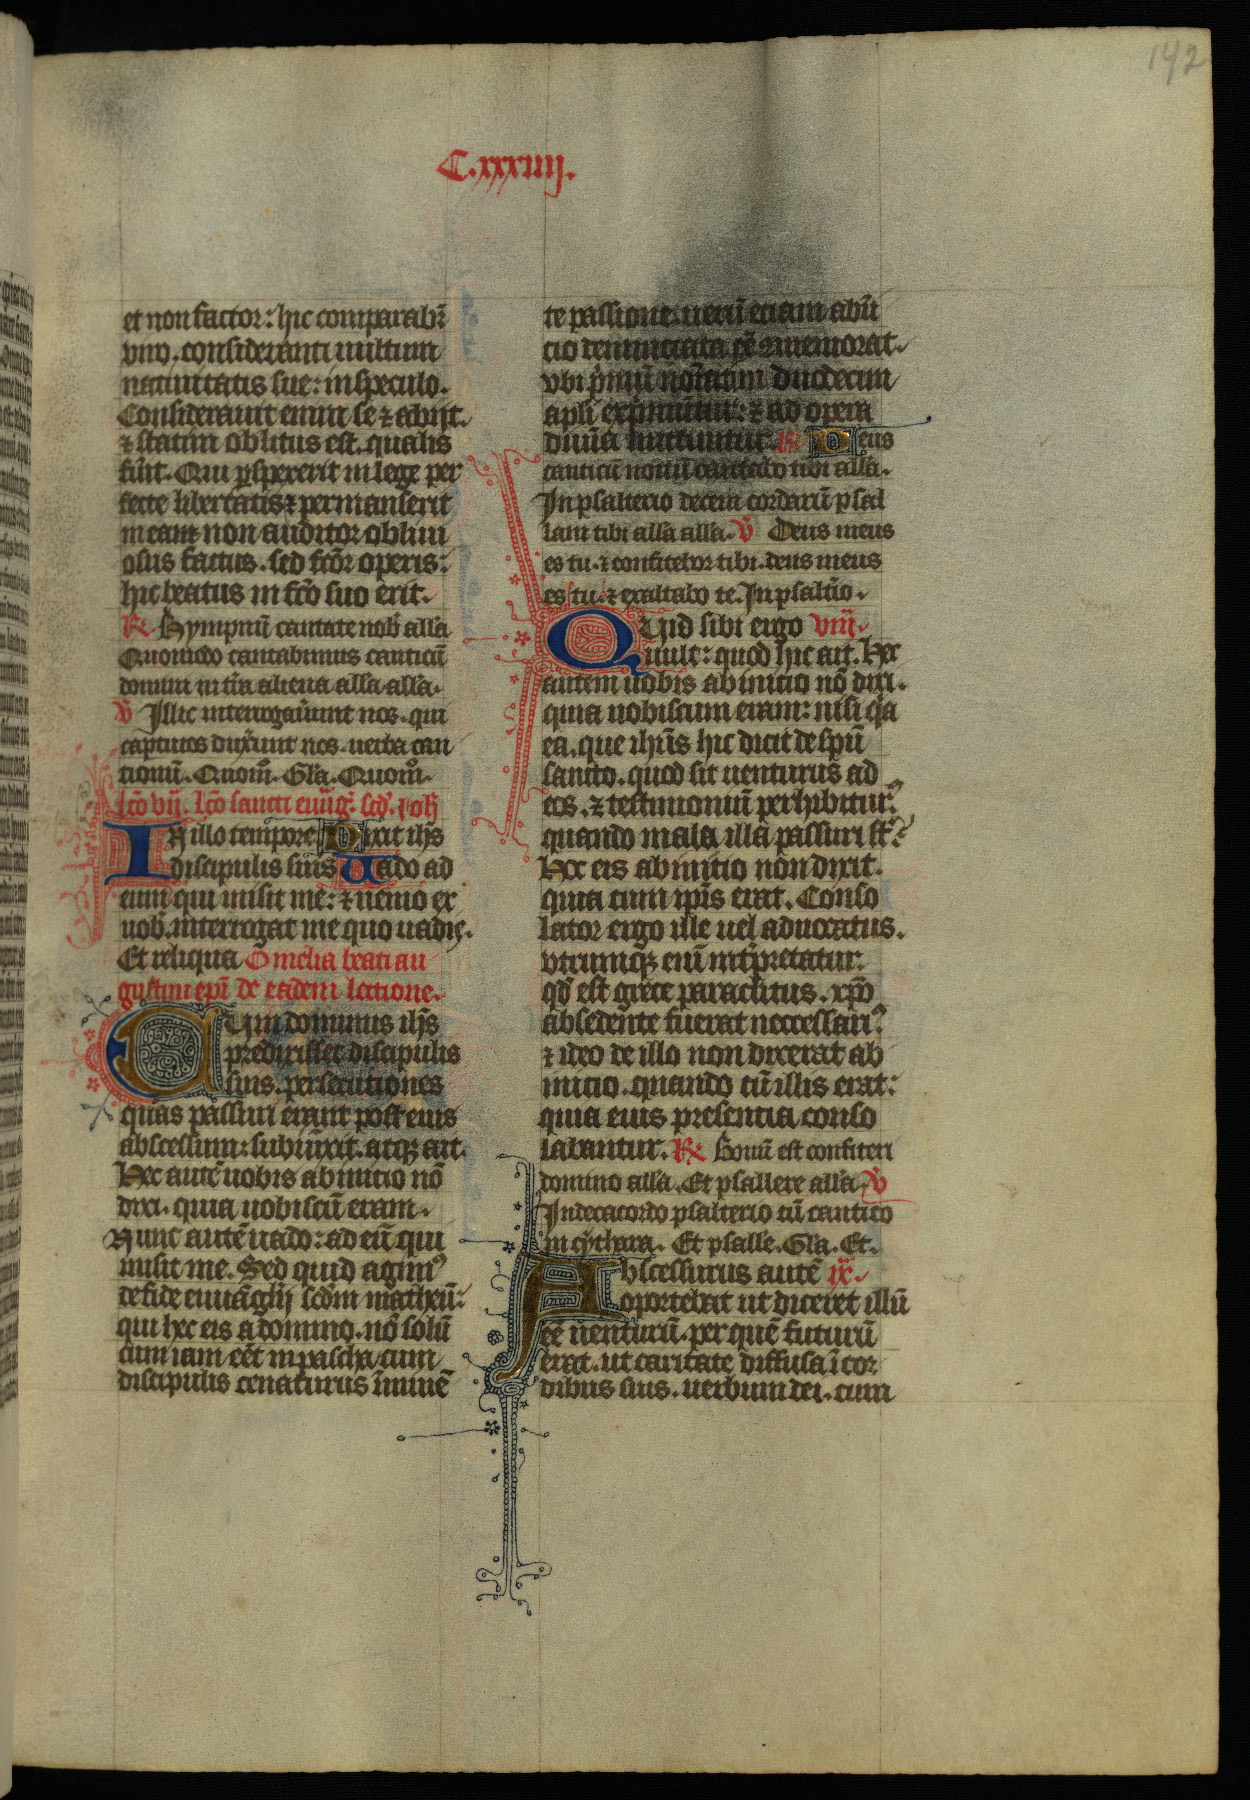 142
C.xxxiiij.
et non factor: hic comparabr̄
viro. consideranti uultum
natiuitatis sue: in speculo.
Considerauit enim se ⁊ abijt.
⁊ statim oblitus est. qualis
fūit. Qui ꝑspexerit in lege per
fecte libertatis ⁊ permanserit
in eam non auditor obliui
osus factus. sed fcōr operis:
hic beatus in fcō suo erit.
R̃. Hympnū cantate nob̄ all̄a
Quomodo cantabimus canticū
domini in tr̄a aliena all̄a all̄a.
v̄ Illic interrogauerunt nos. qui
captiuos duxerunt nos. uerba can
tionū. Quom̄. Gl̄a. Quom̄.
lcō vij. lcō sancti euūg. scd̄. Joh̄
In illo tempore Dixit ih̄s
discipulis suis Uado ad
eum qui misit me: ⁊ nemo ex
uob̄. interrogat me quo uadis.
Et reliqua Omelia beati au
gustini ep̄i de eadem lectione.
Cum dominus ih̄s
predixisset discipulis
suis. persecutiones
quas passuri erant post eius
abscessum: subiūxit. atqꝫ ait.
Hec autē uobis ab initio nō
dixi. quia uobiscū eram.
Nunc autē uado: ad eū qui
misit me. Sed quid agimꝰ
de fide euuāgl̄ij scd̄m matheū:
qui hec eis a domino. nō solū
cum iam eēt in pascha cum
discipulis cenaturus īminē
te passione. uerū etiam ab in̄
cio denunciata eē ɔmemorat.
vbi p̄mū noīatim duodecim
apl̄i exp̄muntur: ⁊ ad opera
diuīa mittuntur. R̃ Deus
canticū nouū cantabo tibi all̄a.
In psalterio decem cordarū psal
lam tibi all̄a all̄a. v̄ Deus meus
es tu. ⁊ confitebor tibi. deus meus
es tu. ⁊ exaltabo te. In psalt̄io.
Quid sibi ergo viij.
uult: quod hic ait. Hec
autem uobis ab initio nō dixi.
quia uobiscum eram: nisi q̄a
ea. que ih̄us hic dicit de sp̄u
sancto. quod sit uenturus ad
eos. ⁊ testimonium perhibiturꝰ
quando mala illa passuri st̄:
Hec eis ab initio non dixit.
quia cum ip̄is erat. Conso
lator ergo ille uel aduocatus.
vtrumqꝫ enī int̄pretatur.
qd̄ est grece paraclitus. xp̄o
absedente fuerat neccessariꝰ
⁊ ideo de illo non dixerat ab
inicio. quando cū illis erat:
quia eius presentia conso
labantur. R̃ Bonū est confiteri
domino all̄a. Et psallere all̄a. v̄
In decacordo psalterio cū cantico
in cythara. Et psalle. Gl̄a. Et.
Abscessurus autē ix.
oportebat ut diceret illū
eē uenturū. per quē futurū
erat. ut caritate diffusa ī cor
dibus suis. uerbum dei. cum